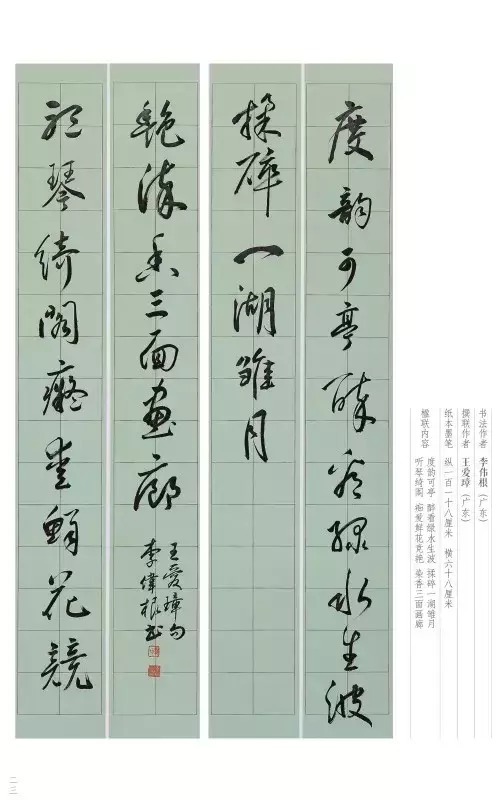 度韻可亭醉看綠水生波
揉碎一湖雛月
聽琴綺閣癡愛鮮花競
艷染香三面画廊
王愛璋句
李偉根書
书法作者 李伟根（广东）
撰联作者 王爱璋（广东）
纸本墨笔 纵一百一十八厘米 横六十八厘米
楹联内容 度韵可亭 醉看绿水生波 揉碎一湖雏月
听琴绮阁 痴爱鲜花竞艳 染香三面画廊
二三